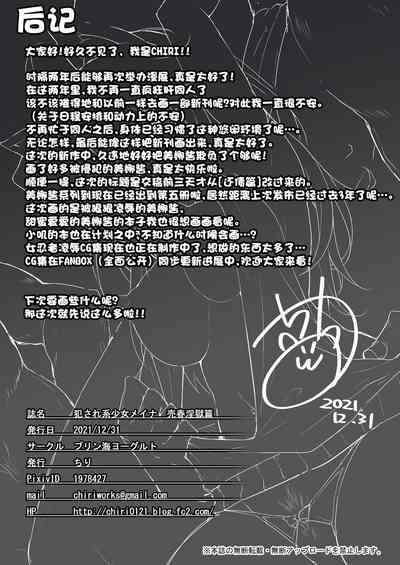 后记
大家好!好久不见了，我是CHIRI!!
时隔两年后能够再次举办漫展,真是太好了!
在这两年里,我不再一直疯狂肝同人了
该不该难得地和以前一样去画一部新刊呢?对此我一直很不安。
（关于日程安排和动力上的不安）
不再忙于同人之后,身体已经习惯了这种悠闲环境了呢…。
无论怎样,最后能像这样把新刊画出来,真是太好了。
这次的新作中,久违地好好把美柳酱欺负了个够呢!
画了好多被侵犯的美柳酱,真是太快乐啦。
顺便一提,这次的标题是交稿前三天才从[还债篇]改过来的。
美柳酱系列到现在已经出到第五册啦,居然距离上次发布已经过去3年了呢…。
这次画的是被狠狠凌辱的美柳酱,
甜蜜爱爱的美柳酱的本子我也很想画画看呢。
小呗的本也在计划之中?不知道什么时候会画…?
女忍者凌辱CG集现在也正在制作中了,想做的东西太多了…
CG集在FANBOX（全面公开）同步更新进展中,欢迎大家来看!
下次要画些什么呢?
那这次就先说这么多啦!!
2021.
12.31
誌名 犯され系少女メイナ・売春淫獄篇
発行日 2021/12/31
サークル プリン海ヨーグルト
発行 ちり
PixivID 1978427
mail chiriworks@gmail.com
HP http://chiri0121.blog.fc2.com/
※本誌の無断転載・無断アップロードを禁止します。